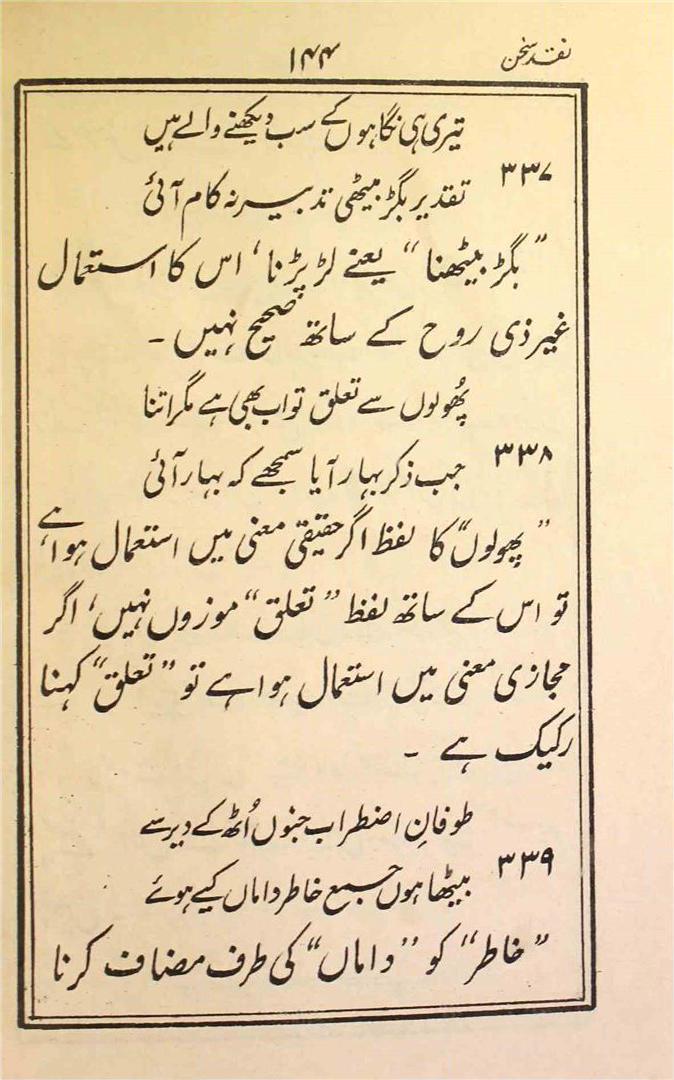 نقد سخن
۱۴۴
تیری ہی نگاہوں کے سب دیکھنے والے ہیں
۳۳۷
تقدیر بگڑ بیٹھی تدبیر نہ کام آئی
”بگڑ بیٹھنا“ یعنے لڑ پڑنا، اس کا استعمال
غیر ذی روح کے ساتھ صحیح نہیں ۔
پُھولوں سے تعلق تو اب بھی ہے مگر اتنا
۳۳۸
جب ذکر بہار آیا سمجھے کہ بہار آئی
”پھولوں“ کا لفظ اگر حقیقی معنی میں استعمال ہوا ہے
تو اس کے ساتھ لفظ ”تعلق“ موزوں نہیں، اگر
مجازی معنی میں استعمال ہوا ہے تو ”تعلق“ کہنا
رکیک ہے ۔
طوفانِ اضطراب جنوں اُٹھ کے دیر سے
۳۳۹
بیٹھا ہوں جمیع خاطر داماں کیے ہوئے
”خاطر“ کو ”داماں“ کی طرف مضاف کرنا